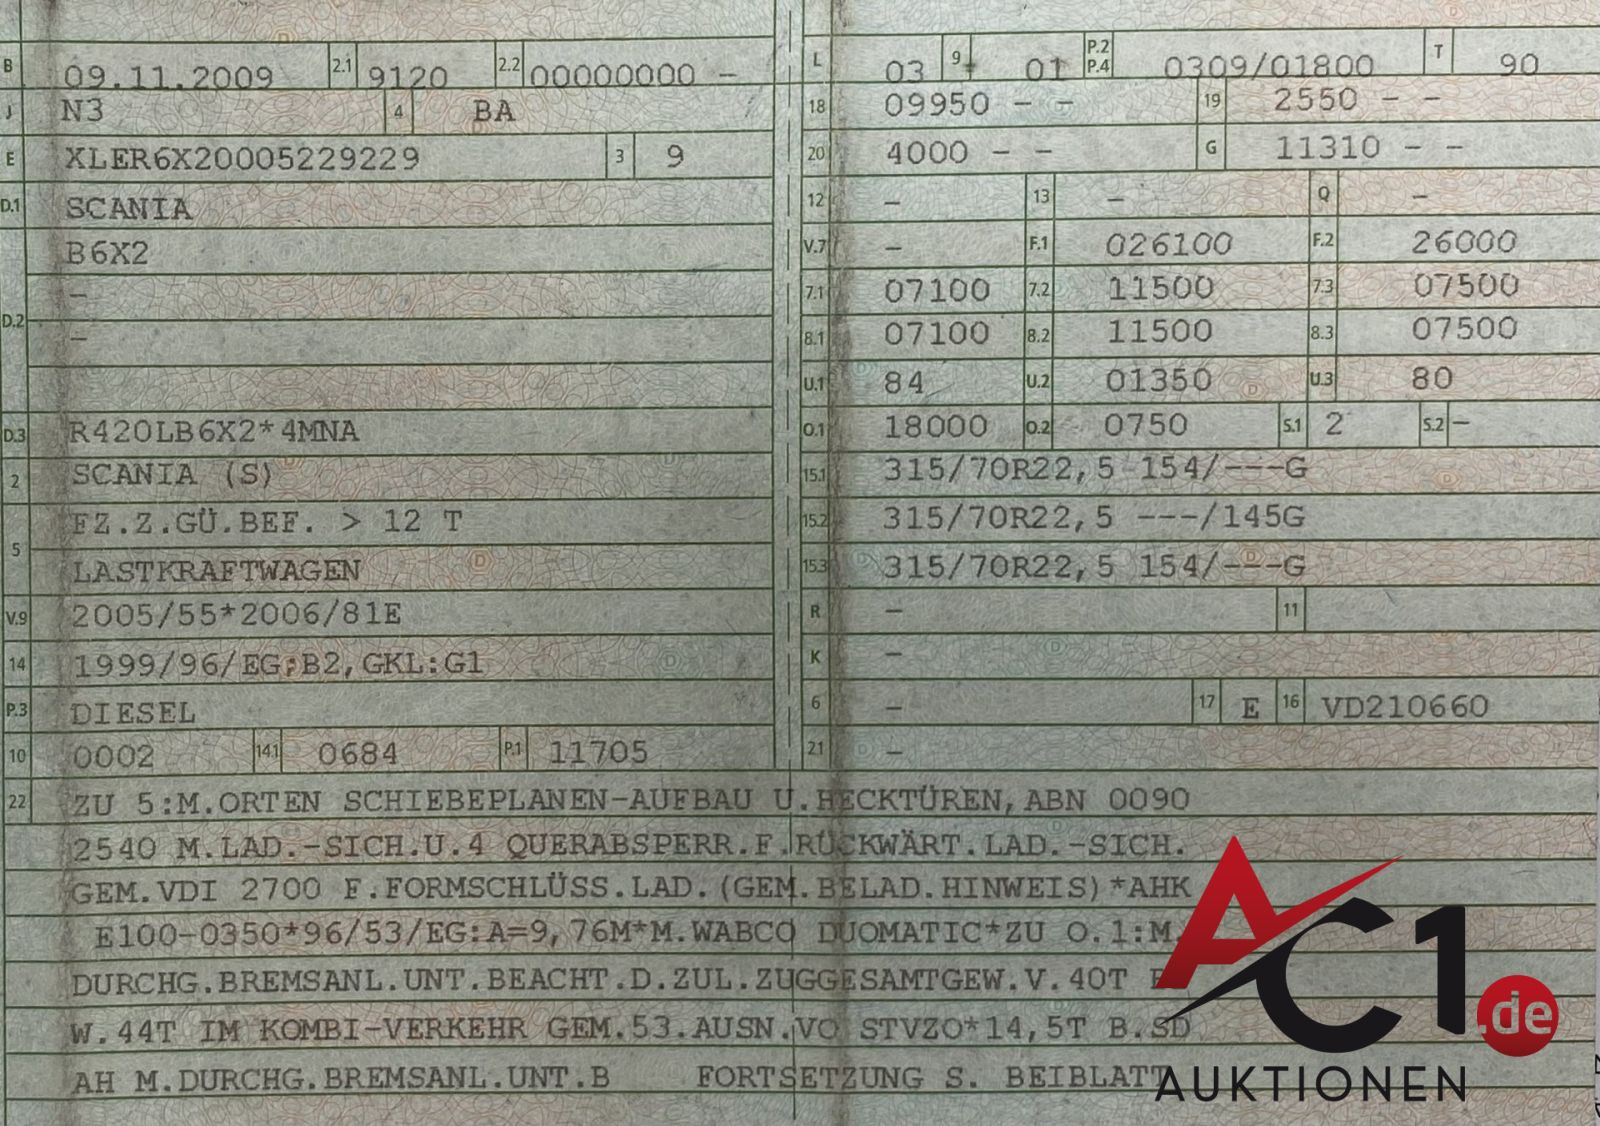 B 09.11.2009 2.1 9120 2.2 00000000 -
J N3 4 BA
E XLER6X20005229229 3 9
D.1 SCANIA
B6X2
-
D.2
-
D.3 R420LB6X2*4MNA
2 SCANIA (S)
FZ.Z.GÜ.BEF. > 12 T
5
LASTKRAFTWAGEN
V.9 2005/55*2006/81E
14 1999/96/EG;B2,GKL:G1
P.3 DIESEL
10 0002 14.1 0684 P.1 11705
L 03 9 01 P.2 P.4 0309/01800 T 90
18 09950 - - 19 2550 - -
20 4000 - - G 11310 - -
12 - 13 - Q -
V.7 - F.1 026100 F.2 26000
7.1 07100 7.2 11500 7.3 07500
8.1 07100 8.2 11500 8.3 07500
U.1 84 U.2 01350 U.3 80
O.1 18000 O.2 0750 S.1 2 S.2 -
15.1 315/70R22,5 154/---G
15.2 315/70R22,5 ---/145G
15.3 315/70R22,5 154/---G
R - 11
K -
6 - 17 E 16 VD210660
21 -
22 ZU 5:M.ORTEN SCHIEBEPLANEN-AUFBAU U.HECKTÜREN,ABN 0090
2540 M.LAD.-SICH.U.4 QUERABSPERR.F.RÜCKWÄRT.LAD.-SICH.
GEM.VDI 2700 F.FORMSCHLÜSS.LAD.(GEM.BELAD.HINWEIS)*AHK
E100-0350*96/53/EG:A=9,76M*M.WABCO DUOMATIC*ZU O.1:M.
DURCHG.BREMSANL.UNT.BEACHT.D.ZUL.ZUGGESAMTGEW.V.40T
W.44T IM KOMBI-VERKEHR GEM.53.AUSN.VO STVZO*14,5T B.SD
AH M.DURCHG.BREMSANL.UNT.B FORTSETZUNG S. BEIBLATT
AC1.de
AUKTIONEN